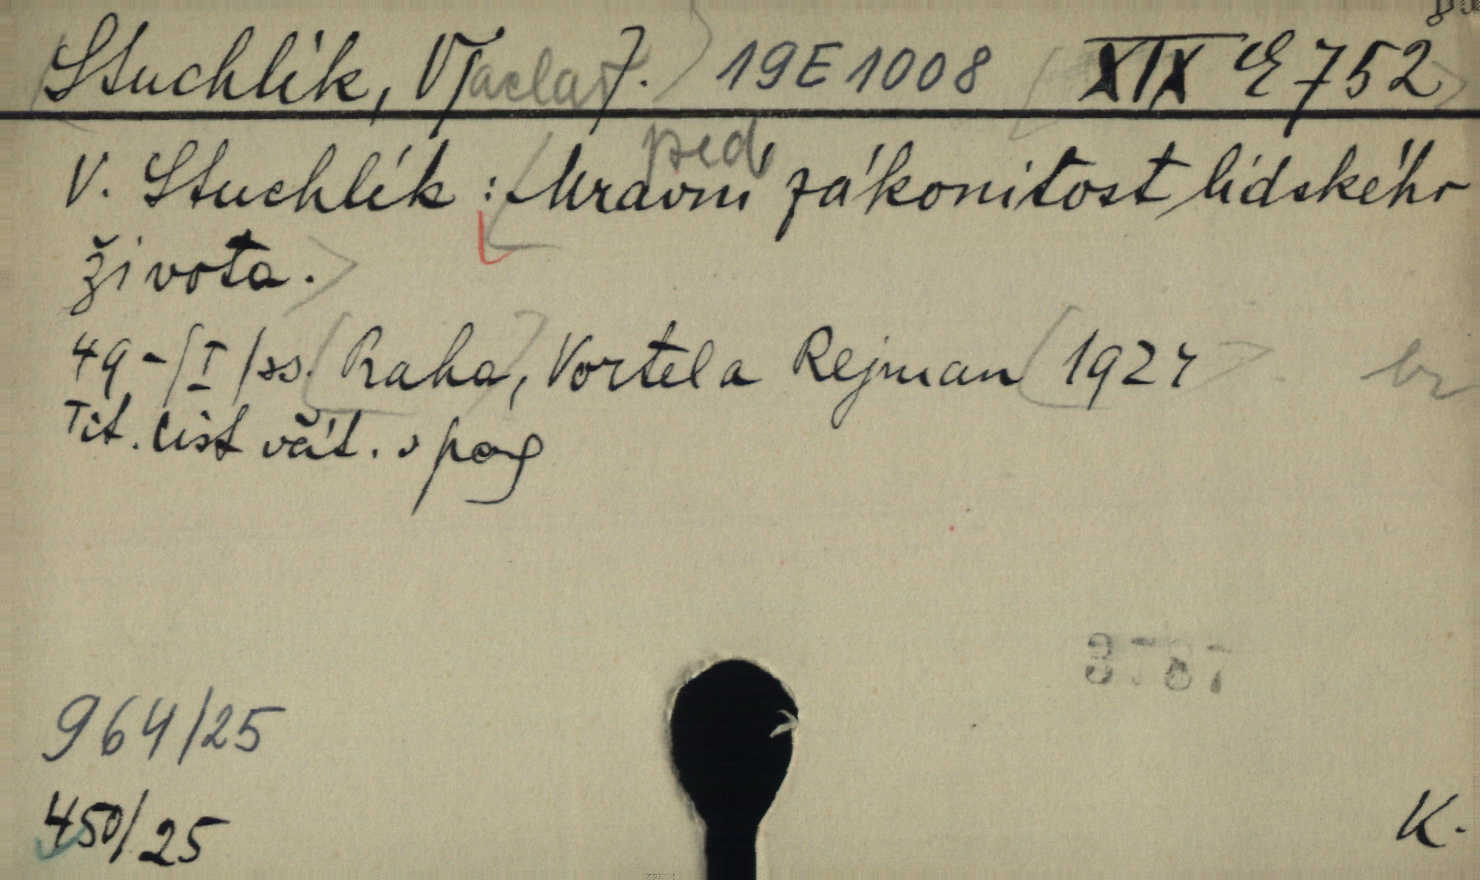 Stuchlík, V[áclav]. 19E1008 XIX E 752
před
V. Stuchlík: Mravní zákonitost lidského
života.
49-/I/ss. Praha, Vortel a Rejman 1924 br
Tit. list včít. v pag
964/25
450/25
K.